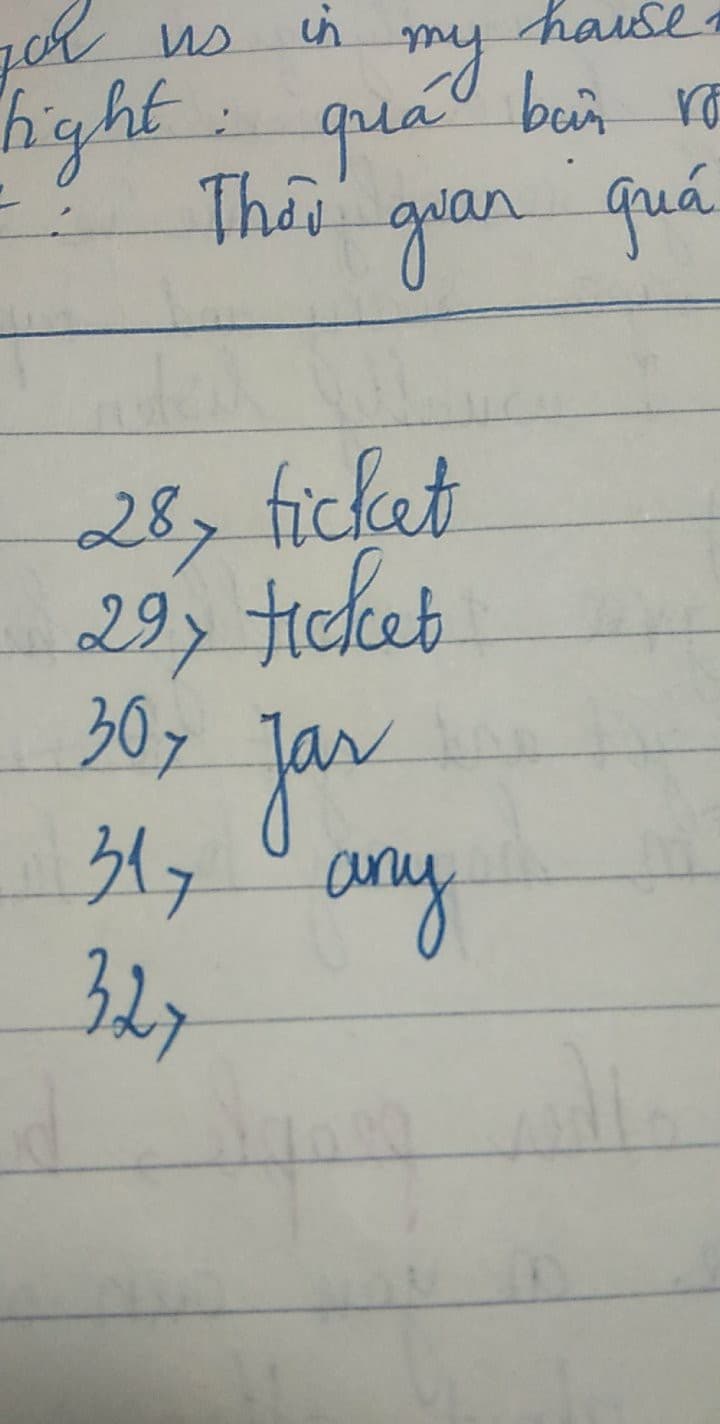 us in my hause
hight : quá bàn
: Thời gian quá
28, ticket
29, ticket
30, Jar
31, any
32,